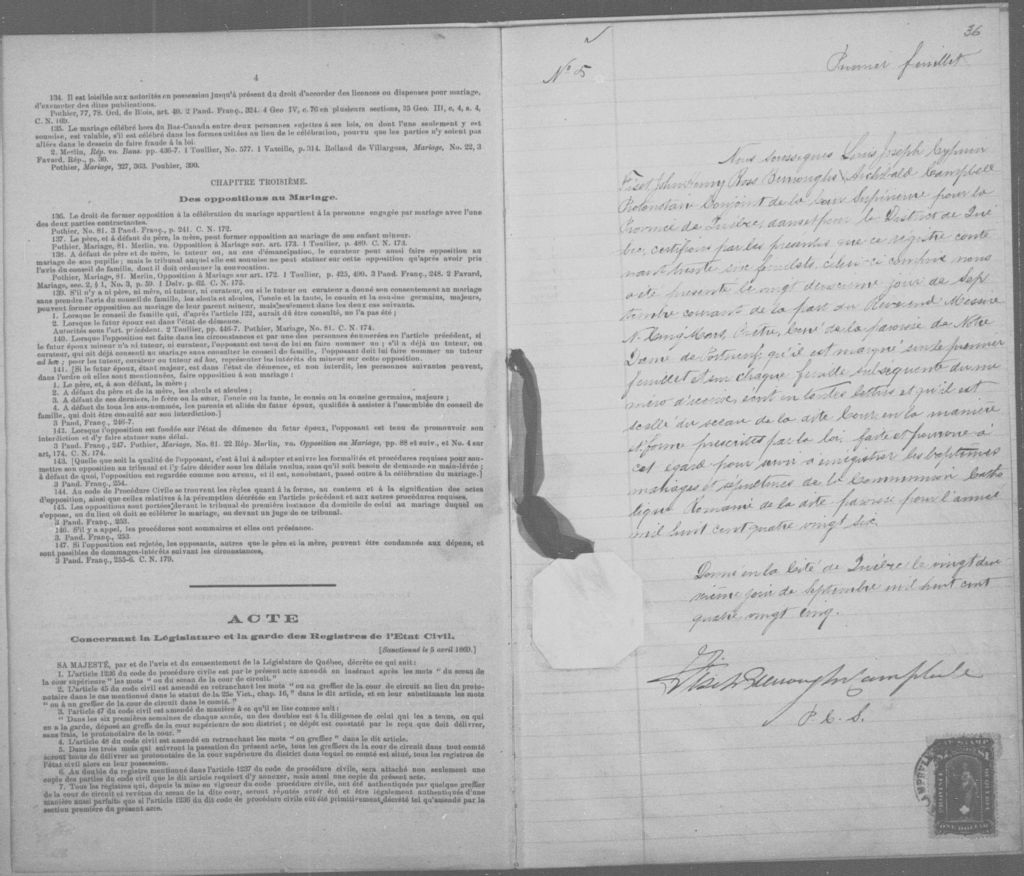 4
134. Il est loisible aux autorités en possession jusqu'à présent du droit d'accorder des licences ou dispenses pour mariage,
d'exempter des dites publications.
Pothier, 77, 78. Ord. de Blois, art. 40. 2 Pand. Franç., 324. 4 Geo IV, c. 76 en plusieurs sections, 35 Geo. III, c, 4, s. 4,
C. N. 169.
135. Le mariage célébré hors du Bas-Canada entre deux personnes sujettes à ses lois, ou dont l'une seulement y est
soumise, est valable, s'il est célébré dans les formes usitées au lieu de la célébration, pourvu que les parties n'y soient pas
allées dans le dessein de faire fraude à la loi.
2. Merlin, Rép. vo. Bans. pp. 436-7. 1 Toullier, No. 577. 1 Vazeille, p. 314. Rolland de Villargues, Mariage, No. 22, 3
Favard. Rép., p. 30.
Pothier, Mariage, 327, 363. Pouhier, 390.
CHAPITRE TROISIÈME.
Des oppositions au Mariage.
136. Le droit de former opposition à la célébration du mariage appartient à la personne engagée par mariage avec l'une
des deux parties contractantes.
Pothier, No. 81. 3 Pand. Franç., p. 241. C. N. 172.
137. Le père, et à défaut du père, la mère, peut former opposition au mariage de son enfant mineur.
Pothier, Mariage, 81. Merlin, vo. Opposition à Mariage sur. art. 173. 1 Toullier, p. 489. C. N. 173.
138. A défaut de père et de mère, le tuteur ou, au cas d'émancipation, le curateur peut aussi faire opposition au
mariage de son pupille; mais le tribunal auquel elle est soumise ne peut statuer sur cette opposition qu'après avoir pris
l'avis du conseil de famille, dont il doit ordonner la convocation.
Pothier, Mariage, 81. Merlin, Opposition à Mariage sur art. 172. 1 Toullier, p. 425, 490. 3 Pand. Franç., 248. 2 Favard,
Mariage, sec. 2, § 1, No. 3, p. 59. 1 Delv. p. 62. C. N. 175.
139. S'il n'y a ni père, ni mère, ni tuteur, ni curateur, ou si le tuteur ou curateur a donné son consentement au mariage
sans prendre l'avis du conseil de famille, les aïeuls et aïeules, l'oncle et la tante, le cousin et la cousine germains, majeurs,
peuvent former opposition au mariage de leur parent mineur, mais seulement dans les deux cas suivants.
1. Lorsque le conseil de famille qui, d'après l'article 122, aurait dû être consulté, ne l'a pas été;
2. Lorsque le futur époux est dans l'état de démence.
Autorités sous l'art. précédent. 2 Toullier, pp. 446-7. Pothier, Mariage, No. 81. C. N. 174.
140. Lorsque l'opposition est faite dans les circonstances et par une des personnes énumérées en l'article précédent, si
le futur époux mineur n'a ni tuteur, ni curateur, l'opposant est tenu de lui en faire nommer un; s'il a déjà un tuteur, ou
curateur, qui ait déjà consenti au mariage sans consulter le conseil de famille, l'opposant doit lui faire nommer un tuteur
ad hoc; pour tel tuteur, curateur ou tuteur ad hoc, représenter les intérêts du mineur sur cette opposition.
141. [Si le futur époux, étant majeur, est dans l'état de démence, et non interdit, les personnes suivantes peuvent,
dans l'ordre où elles sont mentionnées, faire opposition à son mariage:
1. Le père, et, à son défaut, la mère;
2. A défaut du père et de la mère, les aïeuls et aïeules;
3. A défaut de ces derniers, le frère ou la sœur, l'oncle ou la tante, le cousin ou la cousine germains, majeurs;
4. A défaut de tous les sus-nommés, les parents et alliés du futur époux, qualifiés à assister à l'assemblée du conseil de
famille, qui doit être consulté sur son interdiction.]
3 Pand. Franç., 246-7.
142. Lorsque l'opposition est fondée sur l'état de démence du futur époux, l'opposant est tenu de promouvoir son
interdiction et d'y faire statuer sans délai.
3 Pand. Franç., 247. Pothier, Mariage, No. 81. 22 Rép. Merlin, vo. Opposition au Mariage, pp. 88 et suiv., et No. 4 sur
art, 174. C. N. 174.
143. [Quelque que soit la qualité de l'opposant, c'est à lui à adopter et suivre les formalités et procédures requises pour sou-
mettre son opposition au tribunal et l'y faire décider sous les délais voulus, sans qu'il soit besoin de demande en main-levée;
à défaut de quoi, l'opposition est regardée comme non avenu, et il est, nonobstant, passé outre à la célébration du mariage.]
3 Pand. Franç., 254.
144. Au code de Procédure Civile se trouvent les règles quant à la forme, au contenu et à la signification des actes
d'opposition, ainsi que celles relatives à la péremption décrétée en l'article précédent et aux autres procédures requises.
145. Les oppositions sont portées devant le tribunal de première instance du domicile de celui au mariage duquel on
s'oppose, ou du lieu où doit se célébrer le mariage, ou devant un juge de ce tribunal.
3 Pand. Franç., 253.
146. S'il y a appel, les procédures sont sommaires et elles ont préséance.
3. Pand. Franç., 253
147. Si l'opposition est rejetée, les opposants, autres que le père et la mère, peuvent être condamnés aux dépens, et
sont passibles de dommages-intérêts suivant les circonstances,
3 Pand. Franç., 255-6. C. N. 179.
ACTE
Concernant la Législature et la garde des Registres de l'Etat Civil.
[Sanctionné le 5 avril 1869.]
SA MAJESTÉ, par et de l'avis et du consentement de la Législature de Québec, décrète ce qui suit:
1. L'article 1236 du code de procédure civile est par le présent acte amendé en insérant après les mots "du sceau de
la cour supérieure" les mots "ou du sceau de la cour de circuit."
2. L'article 45 du code civil est amendé en retranchant les mots "ou au greffier de la cour de circuit au lieu du proto-
notaire dans le cas mentionné dans le statut de la 25e Vict., chap. 16," dans le dit article, et en leur substituant les mots
"ou à un greffier de la cour de circuit dans le comté."
3. l'article 47 du code civil est amendé de manière à ce qu'il se lise comme suit:
"Dans les six premières semaines de chaque année, un des doubles est à la diligence de celui qui les a tenus, ou qui
en a la garde, déposé au greffe de la cour supérieure de son district; ce dépôt est constaté par le reçu que doit délivrer,
sans frais, le protonotaire de la cour."
4. L'article 48 du code civil est amendé en retranchant les mots "ou greffier" dans le dit article.
5. Dans les trois mois qui suivront la passation du présent acte, tous les greffiers de la cour de circuit dans tout comté
seront tenus de délivrer au protonotaire de la cour supérieure du district dans lequel ce comté est situé, tous les registres de
l'état civil alors en leur possession.
6. Au double du registre mentionné dans l'article 1237 du code de procédure civile, sera attaché non seulement une
copie des parties du code civil que le dit article requiert d'y annexer, mais aussi une copie du présent acte.
7. Tous les registres qui, depuis la mise en vigueur du code de procédure civile, ont été authentiqués par quelque greffier
de la cour de circuit et revêtus du sceau de la dite cour, seront réputés avoir été et être légalement authentiqués d'une
manière aussi parfaite que si l'article 1236 du dit code de procédure civile eût été primitivement décrété tel qu'amendé par la
section première du présent acte.
36
No 5
Premier feuillet
Nous soussignés Louis Joseph Cyprien
Fiset John Henry Ross Burroughs Archibald Campbell
Protonotaire Conjoint de la Cour Supérieure pour la
Province de Québec, dans et pour le District de Qué
bec, certifions par les présentes que ce régistre conte
nant trente six feuillets, celui-ci compris nous
a été présenté le vingt deuxième jour de Sep
tembre courant de la part du Révérend Messire
Prêtre, Curé de la paroisse de Notre
Dame de Portneuf, qu'il est marqué sur le premier
feuillet et sur chaque feuille subséquente du nu
méro d'icelui, écrit en toutes lettres et qu'il est
scellé du sceau de la dite Cour, en la manière
et forme prescrites par la loi faite et pourvue à
cet égard pour servir à enrégistrer les baptêmes
mariages et sépultures de la Communion Catho
lique Romaine de la dite paroisse pour l'année
mil huit cent quatre vingt six.
Donné en la Cité de Québec le vingt deu
xième jour de Septembre mil huit cent
quatre vingt cinq.
Fiset Burroughs Campbell
P. C. S.
ONE DOLLAR